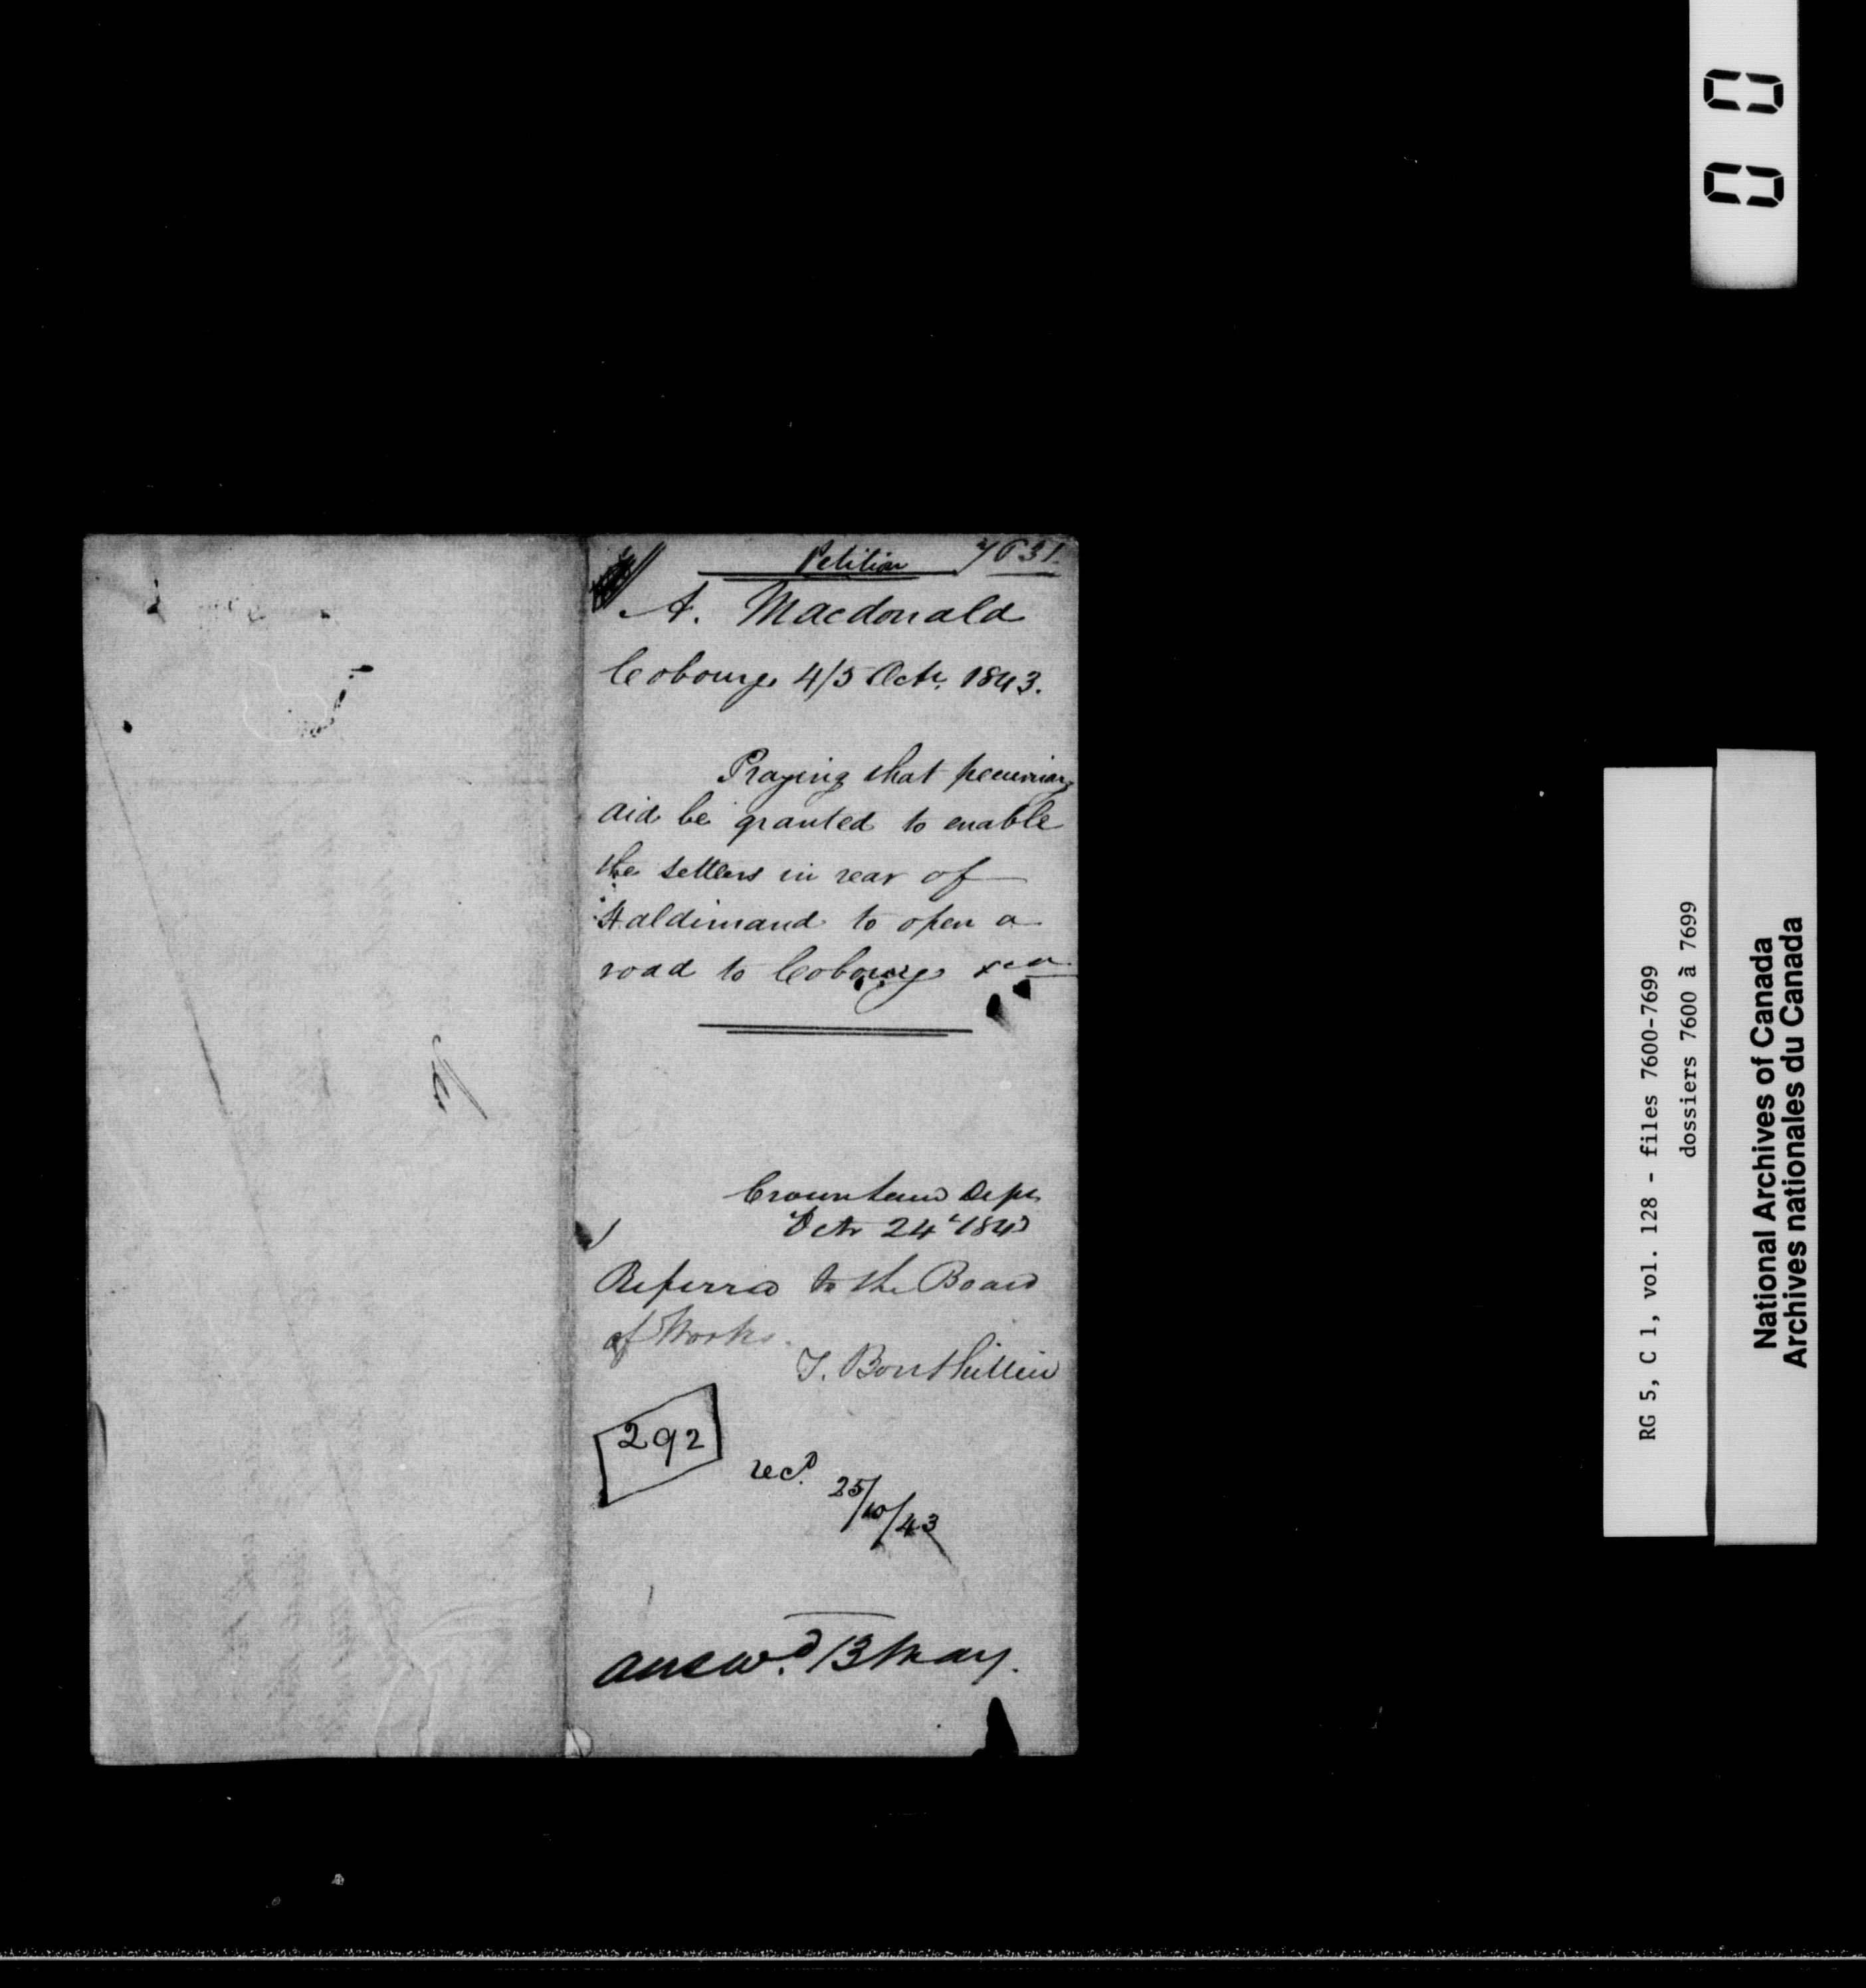 Petition 7631
A. Macdonald
Cobourg 4/5 Octr. 1843.
Praying that pecuniary
aid be granted to enable
the settlers in rear of
Haldimand to open a
road to Cobourg &ca
Crown Land Dept
Octr 24 1843
Referred to the Board
of Works.
T. Bouthillier
292
recd. 25/10/43
answd. 13 May.
00
RG 5, C 1, vol. 128 - files 7600-7699
dossiers 7600 à 7699
National Archives of Canada
Archives nationales du Canada